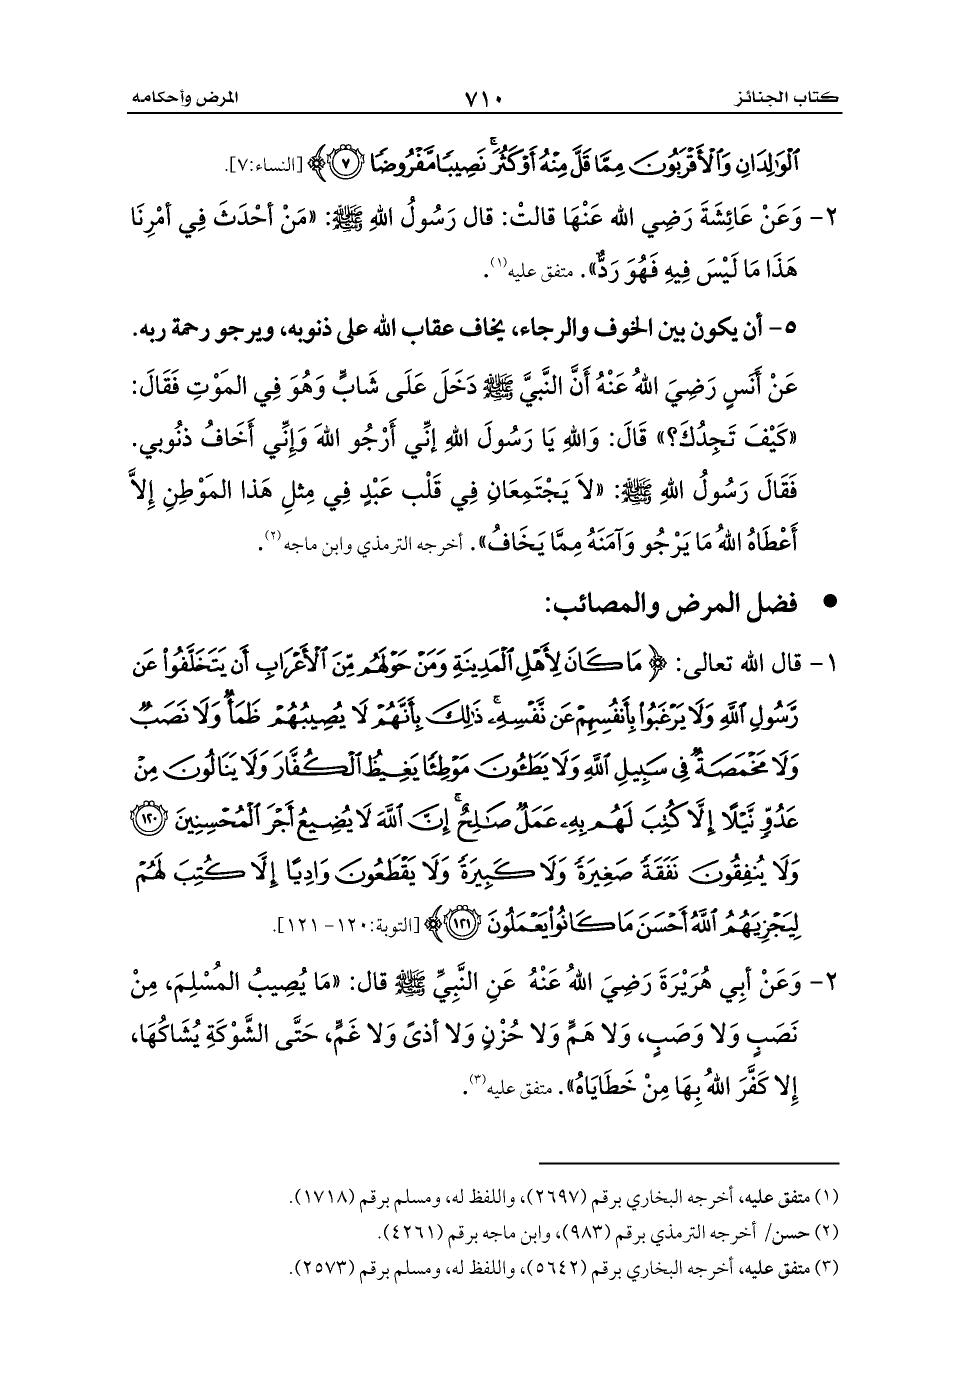 كتاب الجنائز ٧١٠ المرض وأحكامه
ٱلْوَٰلِدَانِ وَٱلْأَقْرَبُونَ مِمَّا قَلَّ مِنْهُ أَوْ كَثُرَ ۚ نَصِيبًا مَّفْرُوضًا ﴿٧﴾ [النساء:٧].
٢- وَعَنْ عَائِشَةَ رَضِي الله عَنْهَا قالتْ: قال رَسُولُ اللهِ ﷺ: «مَنْ أحْدَثَ فِي أمْرِنَا
هَذَا مَا لَيْسَ فِيهِ فَهُوَ رَدٌّ». متفق عليه(١).
٥- أن يكون بين الخوف والرجاء، يخاف عقاب الله على ذنوبه، ويرجو رحمة ربه.
عَنْ أَنَسٍ رَضِيَ اللهُ عَنْهُ أَنَّ النَّبِيَّ ﷺ دَخَلَ عَلَى شَابٍّ وَهُوَ فِي المَوْتِ فَقَالَ:
«كَيْفَ تَجِدُكَ؟» قَالَ: وَاللهِ يَا رَسُولَ اللهِ إنِّي أَرْجُو اللهَ وَإنِّي أَخَافُ ذنُوبي.
فَقَالَ رَسُولُ اللهِ ﷺ: «لاَ يَجْتَمِعَانِ فِي قَلْب عَبْدٍ فِي مِثلِ هَذا المَوْطِنِ إلاَّ
أَعْطَاهُ اللهُ مَا يَرْجُو وَآمَنَهُ مِمَّا يَخَافُ». أخرجه الترمذي وابن ماجه(٢).
● فضل المرض والمصائب:
١- قال الله تعالى: ﴿مَا كَانَ لِأَهْلِ ٱلْمَدِينَةِ وَمَنْ حَوْلَهُم مِّنَ ٱلْأَعْرَابِ أَن يَتَخَلَّفُوا۟ عَن
رَّسُولِ ٱللَّهِ وَلَا يَرْغَبُوا۟ بِأَنفُسِهِمْ عَن نَّفْسِهِۦ ۚ ذَٰلِكَ بِأَنَّهُمْ لَا يُصِيبُهُمْ ظَمَأٌ وَلَا نَصَبٌ
وَلَا مَخْمَصَةٌ فِى سَبِيلِ ٱللَّهِ وَلَا يَطَـُٔونَ مَوْطِئًا يَغِيظُ ٱلْكُفَّارَ وَلَا يَنَالُونَ مِنْ
عَدُوٍّ نَّيْلًا إِلَّا كُتِبَ لَهُم بِهِۦ عَمَلٌ صَٰلِحٌ ۚ إِنَّ ٱللَّهَ لَا يُضِيعُ أَجْرَ ٱلْمُحْسِنِينَ ١٢٠
وَلَا يُنفِقُونَ نَفَقَةً صَغِيرَةً وَلَا كَبِيرَةً وَلَا يَقْطَعُونَ وَادِيًا إِلَّا كُتِبَ لَهُمْ
لِيَجْزِيَهُمُ ٱللَّهُ أَحْسَنَ مَا كَانُوا۟ يَعْمَلُونَ ١٢١﴾ [التوبة:١٢٠-١٢١].
٢- وَعَنْ أبِي هُرَيْرَةَ رَضِيَ اللهُ عَنْهُ عَنِ النَّبِيِّ ﷺ قال: «مَا يُصِيبُ المُسْلِمَ، مِنْ
نَصَبٍ وَلا وَصَبٍ، وَلا هَمٍّ وَلا حُزْنٍ وَلا أذىً وَلا غَمٍّ، حَتَّى الشَّوْكَةِ يُشَاكُهَا،
إِلا كَفَّرَ اللهُ بِهَا مِنْ خَطَايَاهُ». متفق عليه(٣).
(١) متفق عليه، أخرجه البخاري برقم (٢٦٩٧)، واللفظ له، ومسلم برقم (١٧١٨).
(٢) حسن/ أخرجه الترمذي برقم (٩٨٣)، وابن ماجه برقم (٤٢٦١).
(٣) متفق عليه، أخرجه البخاري برقم (٥٦٤٢)، واللفظ له، ومسلم برقم (٢٥٧٣).